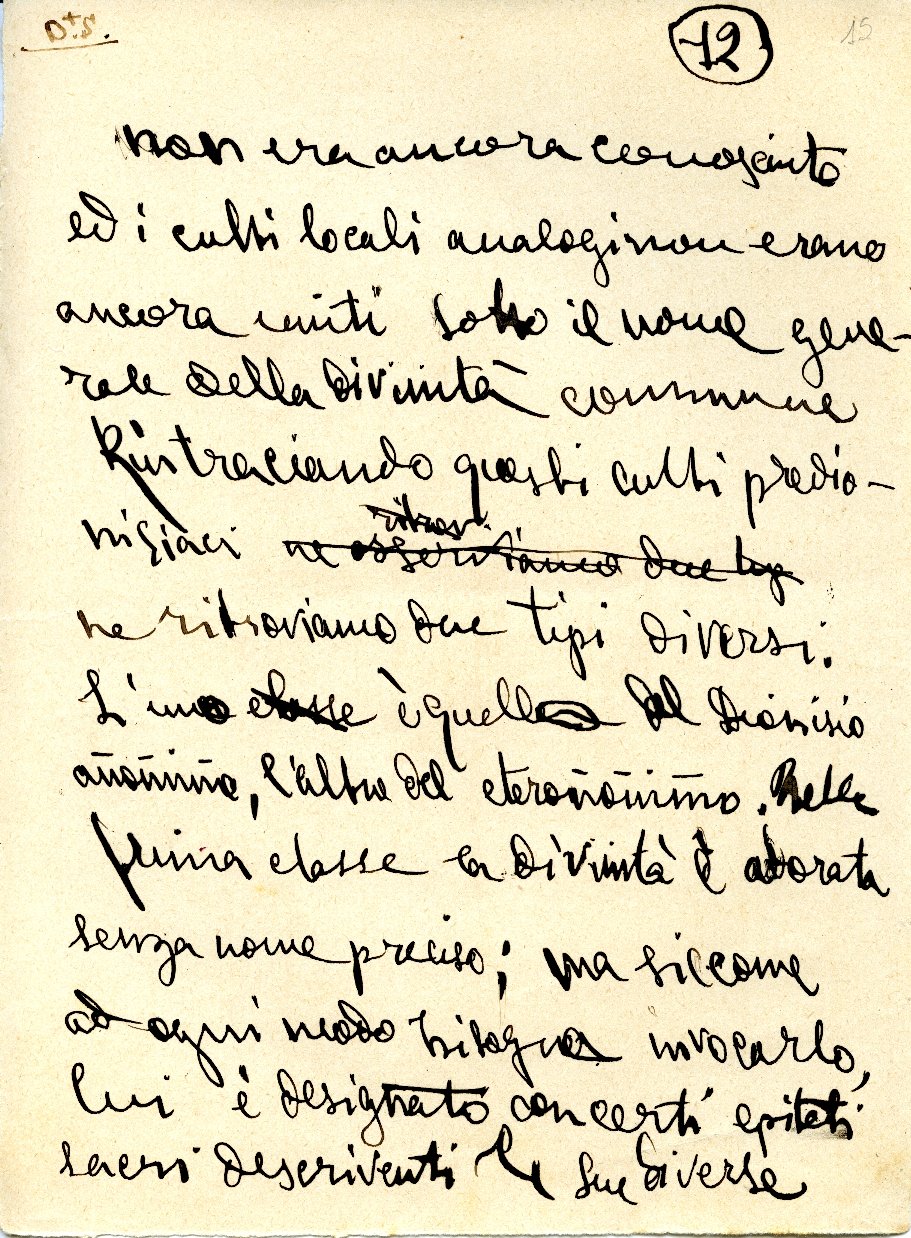 D+S.
12
15
non era ancora conosciuto
ed i culti locali analoghi non erano
ancora uniti sotto il nome gene-
rale della divinità commune
Rintraciando questi culti predio-
nisiaci ne osserviamo due
ritrov.
ne ritroviamo due tipi diversi.
L'uno classe è quello del Dionisio
anonimo, l'altro del eteronomimo. Nella
prima classe la divinità è adorata
senza nome preciso; ma siccome
ad ogni modo bisogna invocarlo,
lui è designato con certi epiteti
sacri descriventi le sue diverse